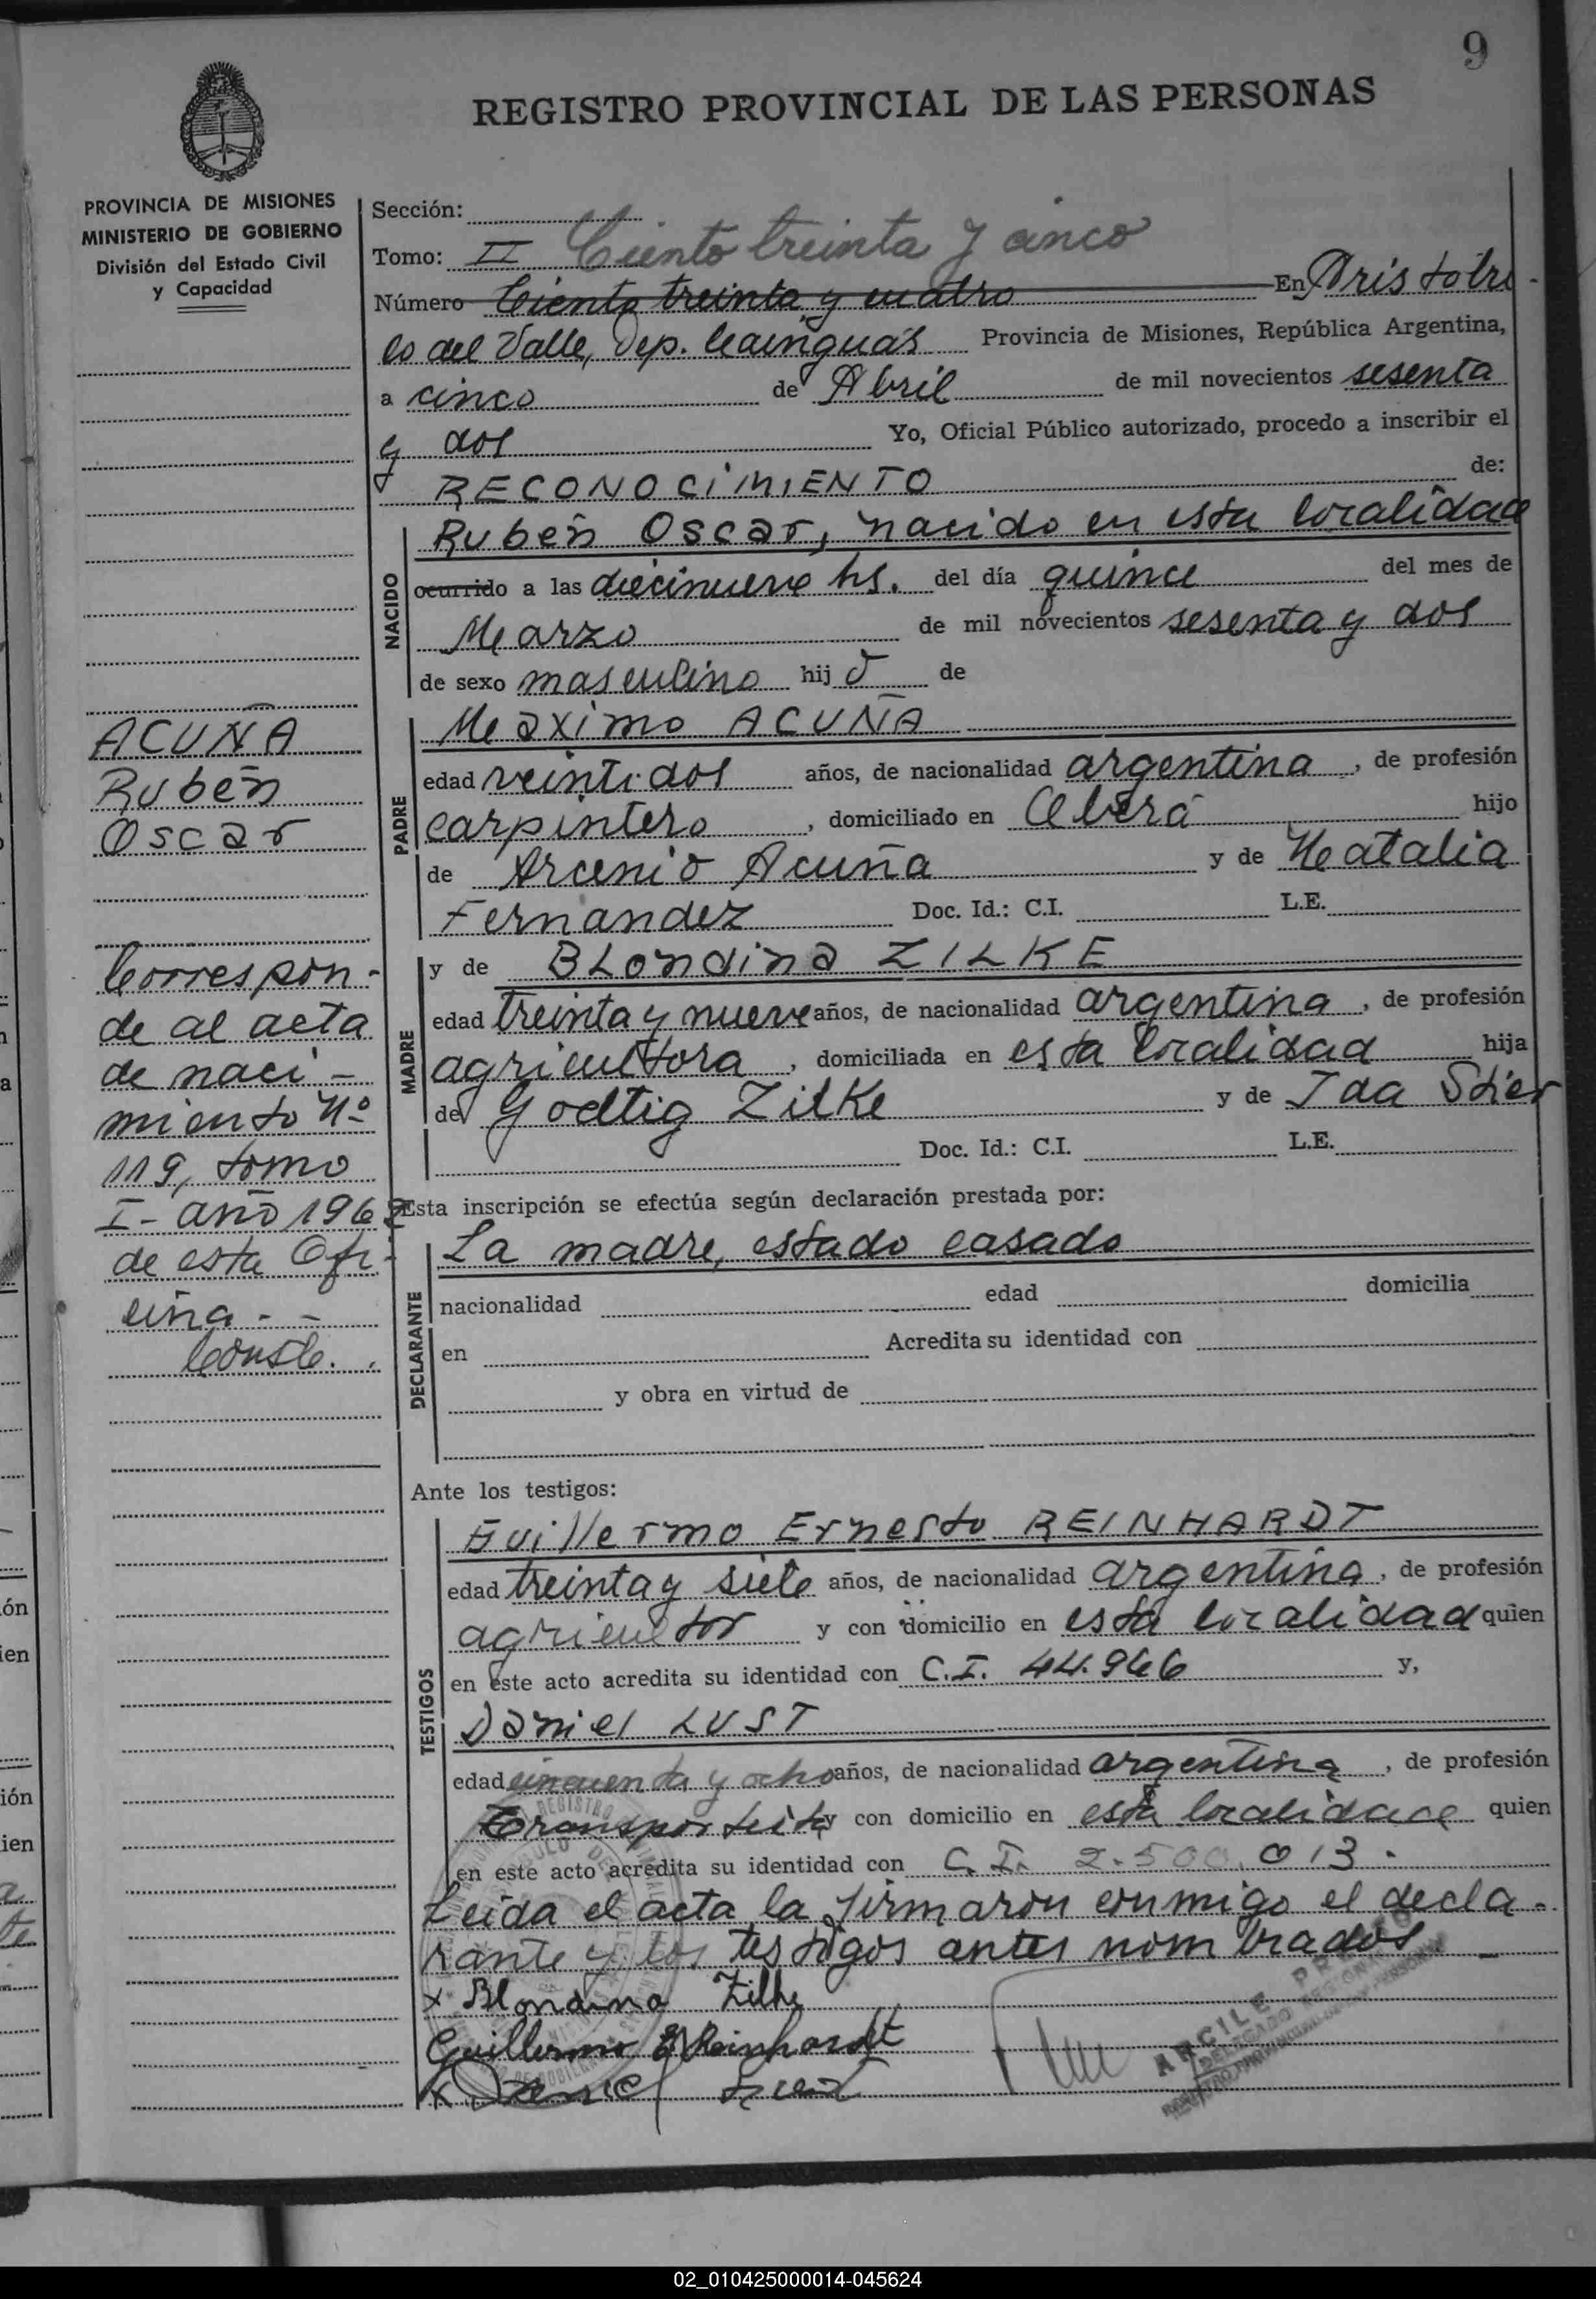 9
REGISTRO PROVINCIAL DE LAS PERSONAS
PROVINCIA DE MISIONES
MINISTERIO DE GOBIERNO
División del Estado Civil
y Capacidad
Sección:
Tomo: II Ciento treinta y cinco
Número Ciento treinta y cuatro En Aristobu-
lo del Valle, Dep. Cainguás Provincia de Misiones, República Argentina,
a cinco de Abril de mil novecientos sesenta
y dos Yo, Oficial Público autorizado, procedo a inscribir el
RECONOCIMIENTO de:
NACIDO
Rubén Oscar, nacido en esta localidad
ocurrido a las diecinueve hs. del día quince del mes de
Marzo de mil novecientos sesenta y dos
de sexo masculino hijo de
PADRE
Maximo ACUÑA
edad veintidos años, de nacionalidad argentina, de profesión
carpintero, domiciliado en Oberá hijo
de Arcenio Acuña y de Natalia
Fernandez Doc. Id.: C.I. L.E.
MADRE
y de Blondina ZILKE
edad treinta y nueve años, de nacionalidad argentina, de profesión
agricultora, domiciliada en esta localidad hija
de Godtig Zilke y de Ida Stier
Doc. Id.: C.I. L.E.
Esta inscripción se efectúa según declaración prestada por:
DECLARANTE
La madre, estado casado
nacionalidad edad domicilia
en Acredita su identidad con
y obra en virtud de
ACUÑA
Rubén
Oscar
Correspon-
de al acta
de naci-
miento Nº
119, tomo
I- año 1962
de esta Ofi-
cina.--
Conste.
Ante los testigos:
TESTIGOS
Guillermo Ernesto REINHARDT
edad treinta y siete años, de nacionalidad argentina, de profesión
agricultor y con domicilio en esta localidad quien
en este acto acredita su identidad con C.I. 44.966 y,
Daniel LUST
edad cincuenta y ocho años, de nacionalidad argentina, de profesión
Transportista y con domicilio en esta localidad quien
en este acto acredita su identidad con C.I. 2.500.013.
Leida el acta la firmaron conmigo el decla-
rante y los testigos antes nombrados
x Blondina Zilke
Guillermo E Reinhardt
x Daniel Lust
ARCILE PRIETO
02_010425000014-045624